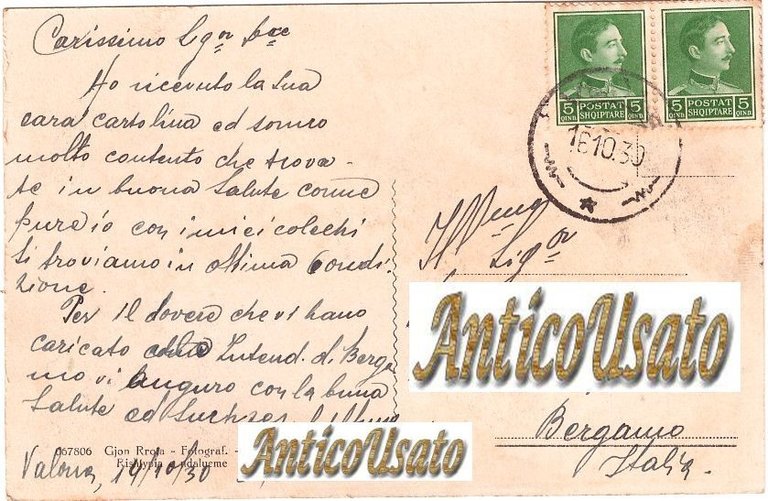 Carissimo Sgor
Ho ricevuto la sua
cara cartolina ed sonro
molto contento che trova-
te in buona Salute come
pure io con i miei colechi
ti troviamo in Ottima Condi
zione.
Per il dovere che vi hano
caricato Intend. di Berga
mo vi auguro con la buna
Salute ed
Valona, 14/10/30
067806 Gjon Rroja - Fotograf. -
Rishtypja ndalueme
5 QIND. POSTAT SHQIPTARE 5 QIND.
5 QIND. POSTAT SHQIPTARE 5 QIND.
16.10.30
Sigor
AnticoUsato
AnticoUsato
Bergamo
Italia.